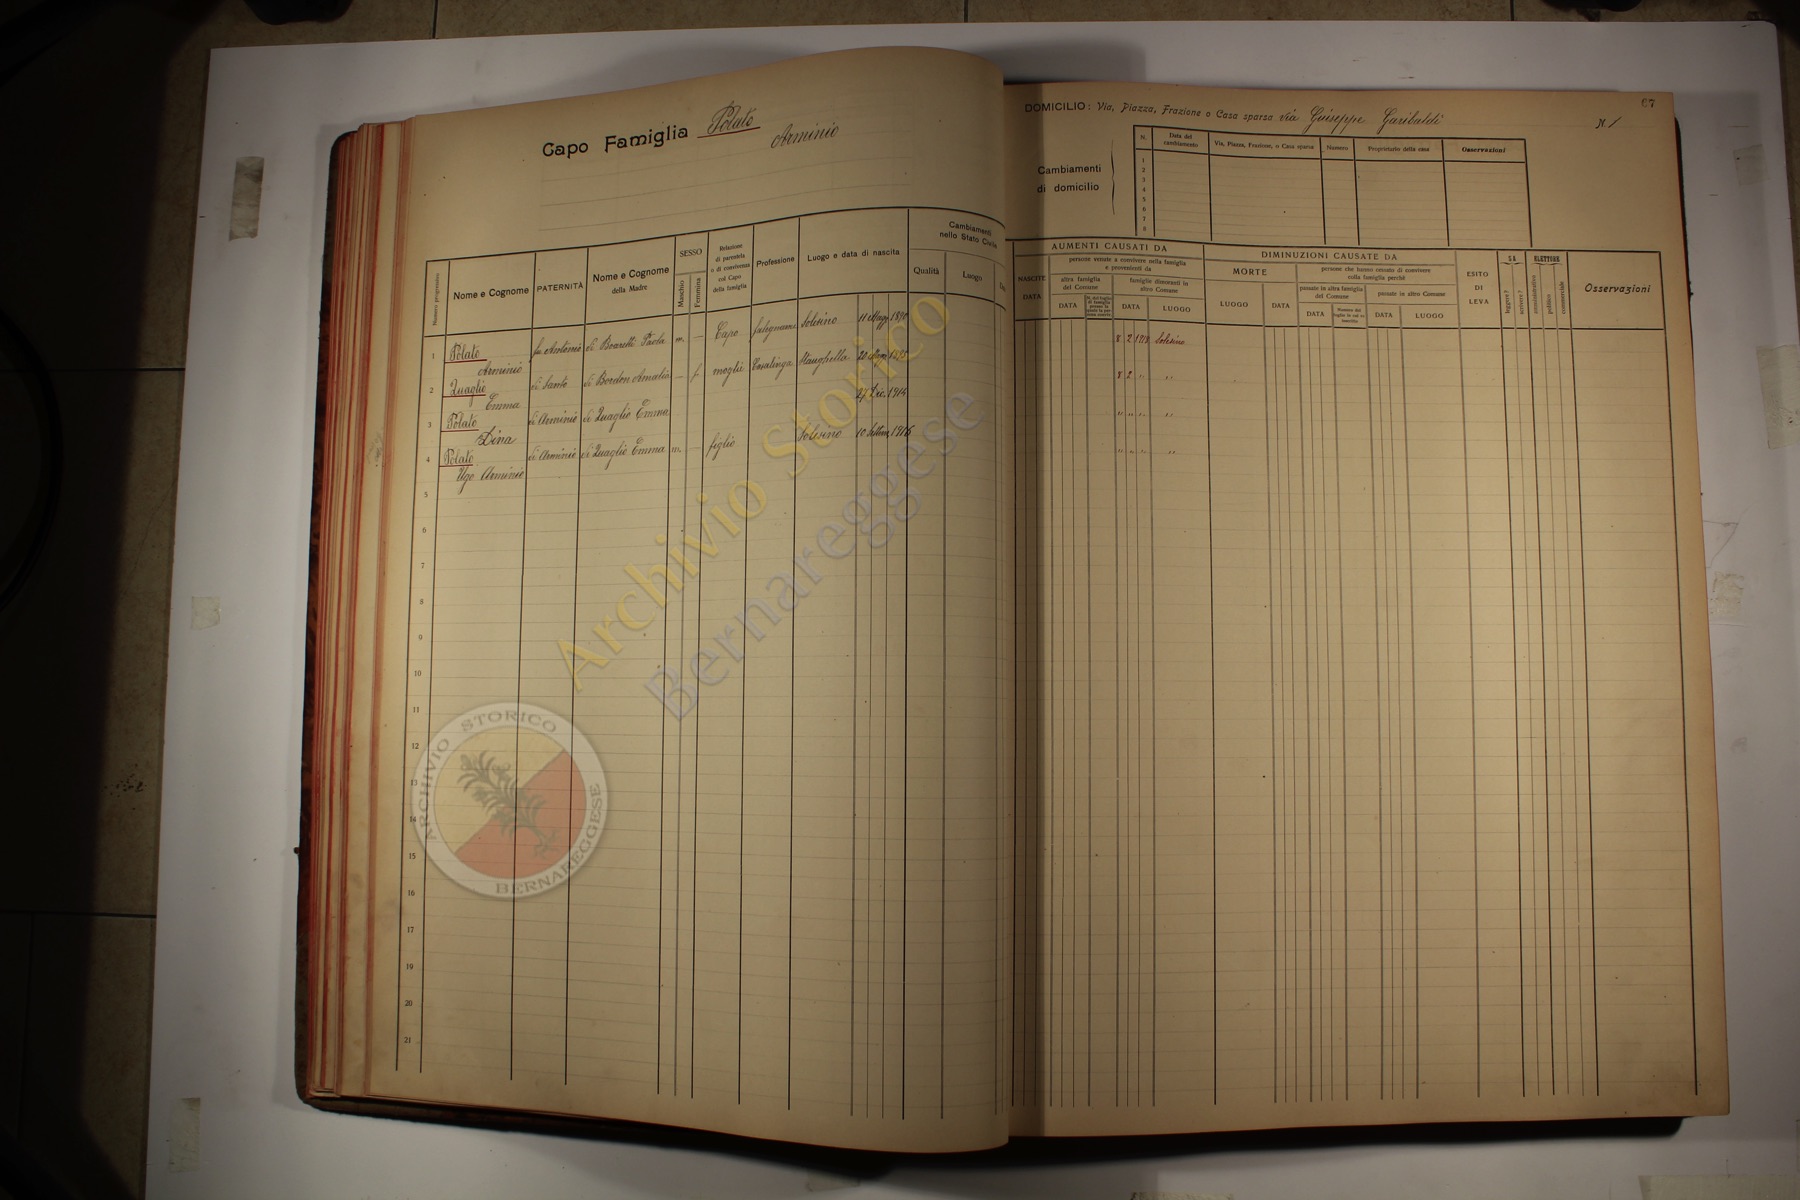 Capo Famiglia Polato
Arminio
67
DOMICILIO: Via, Piazza, Frazione o Casa sparsa via Giuseppe Garibaldi N. 1
Cambiamenti
di domicilio
N. Data del cambiamento Via, Piazza, Frazione, o Casa sparsa Numero Proprietario della casa Osservazioni
1
2
3
4
5
6
7
8
Numero progressivo Nome e Cognome PATERNITÀ Nome e Cognome della Madre SESSO Maschio Femmina Relazione di parentela o di convivenza col Capo della famiglia Professione Luogo e data di nascita Cambiamenti nello Stato Civile Qualità Luogo
NASCITE DATA AUMENTI CAUSATI DA persone venute a convivere nella famiglia e provenienti da altra famiglia del Comune DATA famiglie dimoranti in altro Comune DATA LUOGO
DIMINUZIONI CAUSATE DA MORTE LUOGO DATA persone che hanno cessato di convivere colla famiglia perchè passate in altra famiglia del Comune DATA passate in altro Comune DATA LUOGO
ESITO DI LEVA SA leggere? scrivere? ELETTORE amministrativo politico commerciale Osservazioni
1 Polato Arminio fu Antonio di Boaretti Paola m. — Capo falegname Solesino 11 Magg. 1890 8 2 1918 Solesino
2 Quaglio Emma di Santo di Bordon Amalia — f. moglie Casalinga Stanghella 20 1895 8 2 " "
3 Polato Dina di Arminio di Quaglio Emma 27 Dic. 1914 " " " "
4 Polato Ugo Arminio di Arminio di Quaglio Emma m. — figlio Solesino 10 Settem. 1916 " " " "
5
6
7
8
9
10
11
12
13
14
15
16
17
19
20
21
Archivio Storico
Bernareggese
ARCHIVIO STORICO
BERNAREGGESE